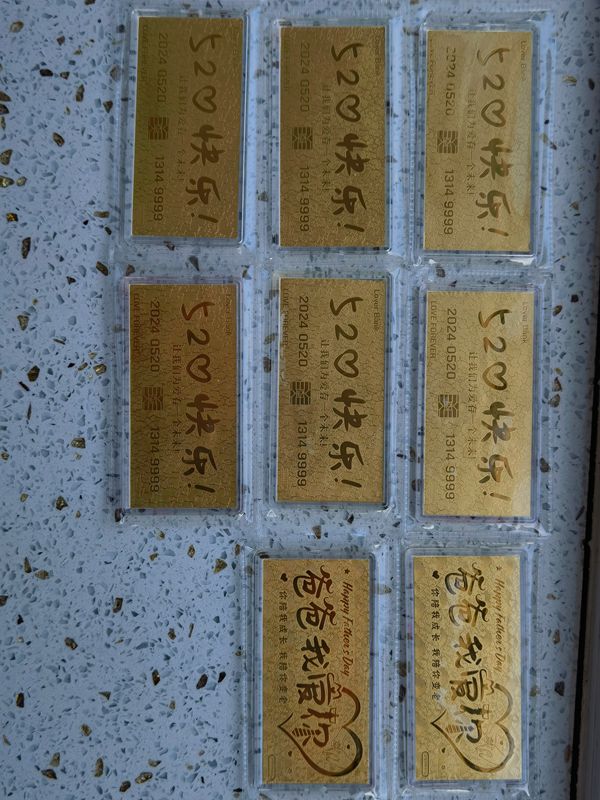 Lover Bank
520♡快乐!
让我们为爱存一个未来!
2024 0520 1314 9999
LOVE FOREVER
Lover Bank
520♡快乐!
让我们为爱存一个未来!
2024 0520 1314 9999
LOVE FOREVER
Lover Bank
520♡快乐!
让我们为爱存一个未来!
2024 0520 1314 9999
LOVE FOREVER
Lover Bank
520♡快乐!
让我们为爱存一个未来!
2024 0520 1314 9999
LOVE FOREVER
Lover Bank
520♡快乐!
让我们为爱存一个未来!
2024 0520 1314 9999
LOVE FOREVER
Lover Bank
520♡快乐!
让我们为爱存一个未来!
2024 0520 1314 9999
LOVE FOREVER
Happy Father's Day
爸爸我爱你
你陪我成长 我陪你变老
Happy Father's Day
爸爸我爱你
你陪我成长 我陪你变老